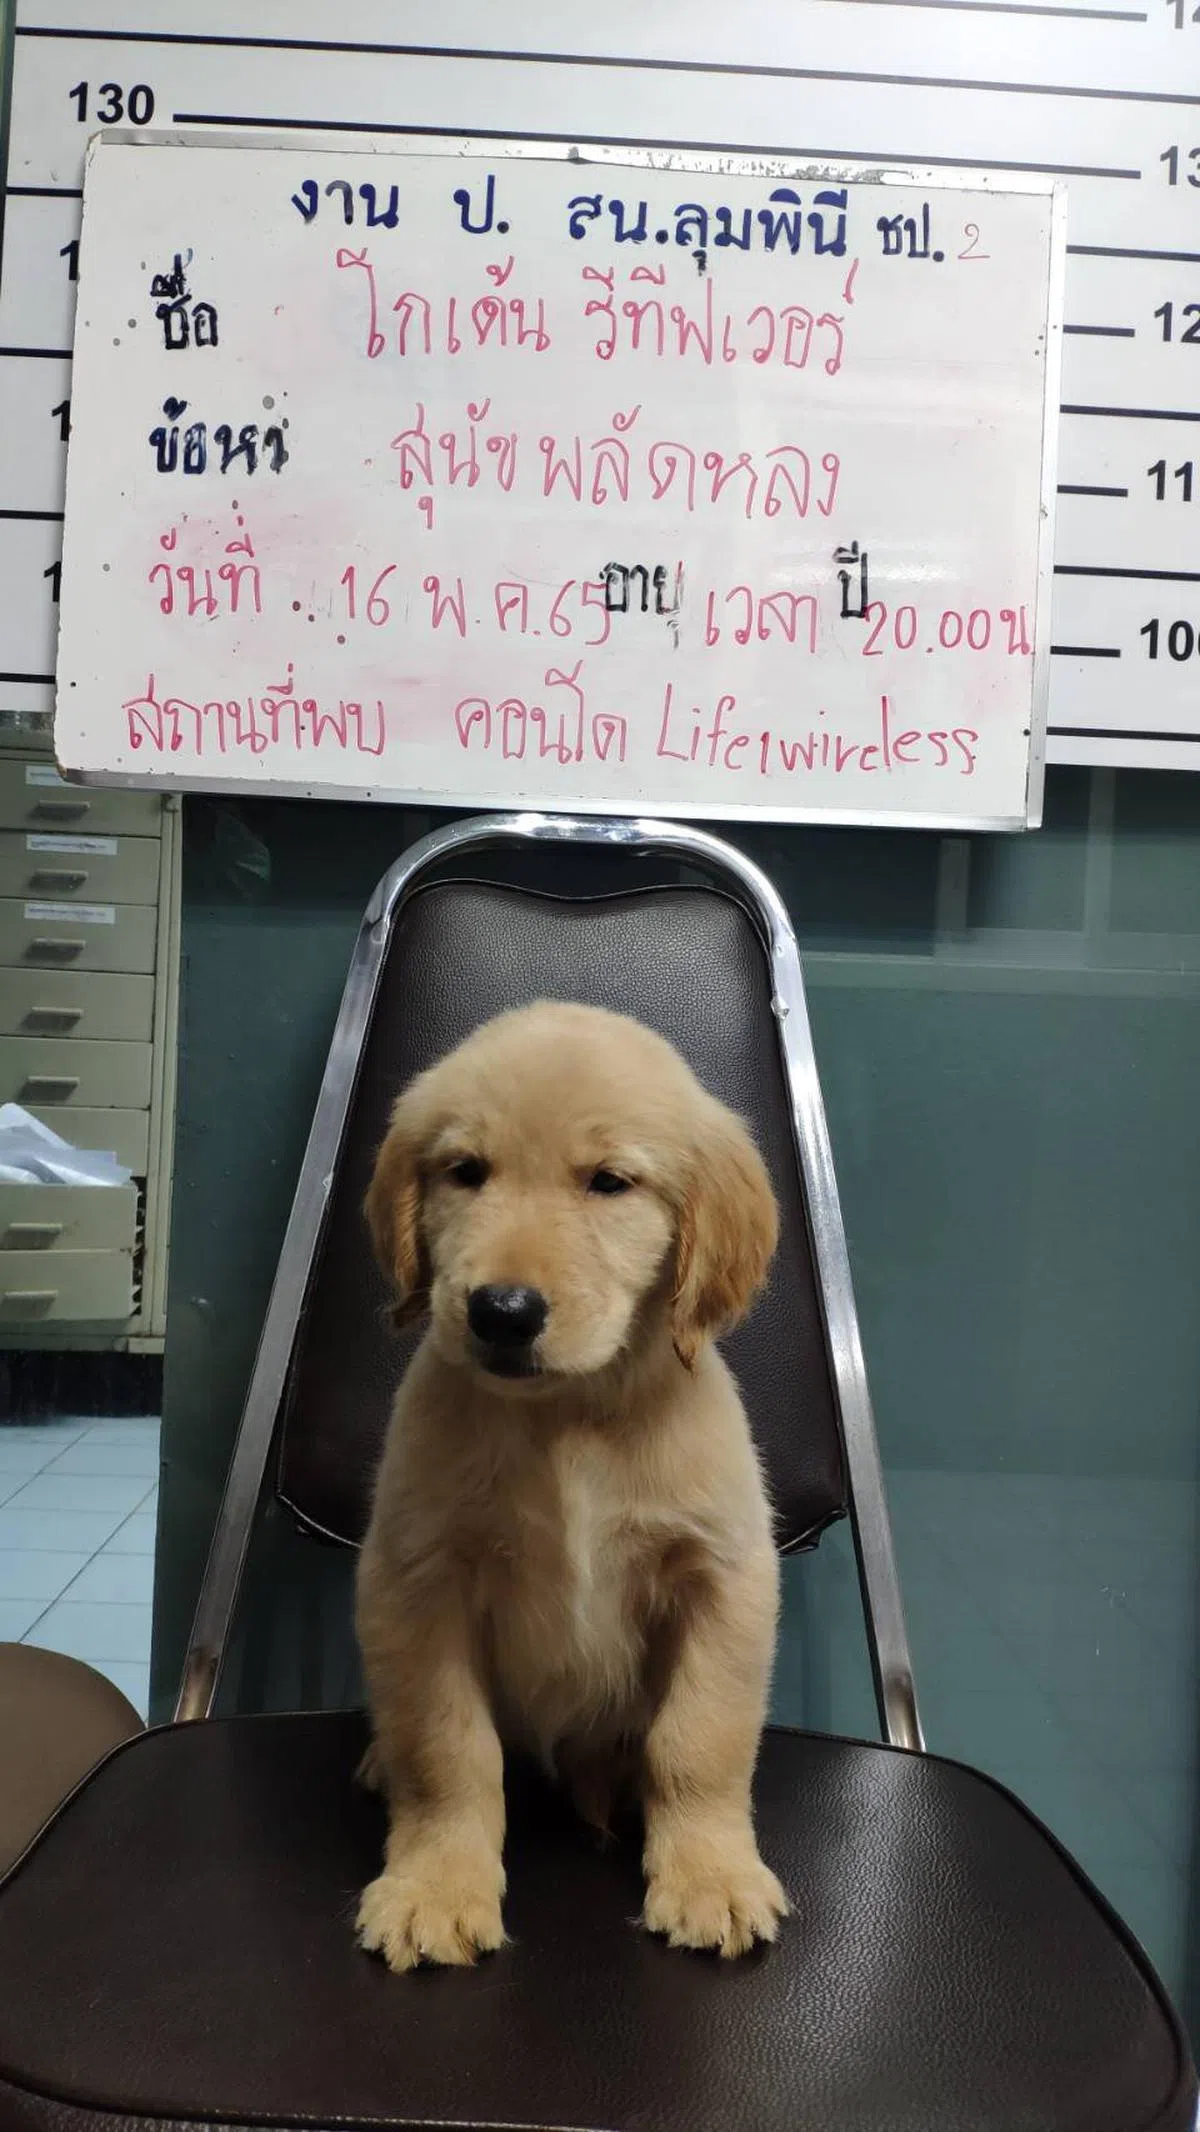 130
งาน ป. สน.ลุมพินี ชป. 2
ชื่อ โกเด้น รีทีฟเวอร์
ข้อหา สุนัขพลัดหลง
วันที่ . 16 พ.ค.65 อายุ เวลา ปี 20.00น
สถานที่พบ คอนโด Life1wireless
100